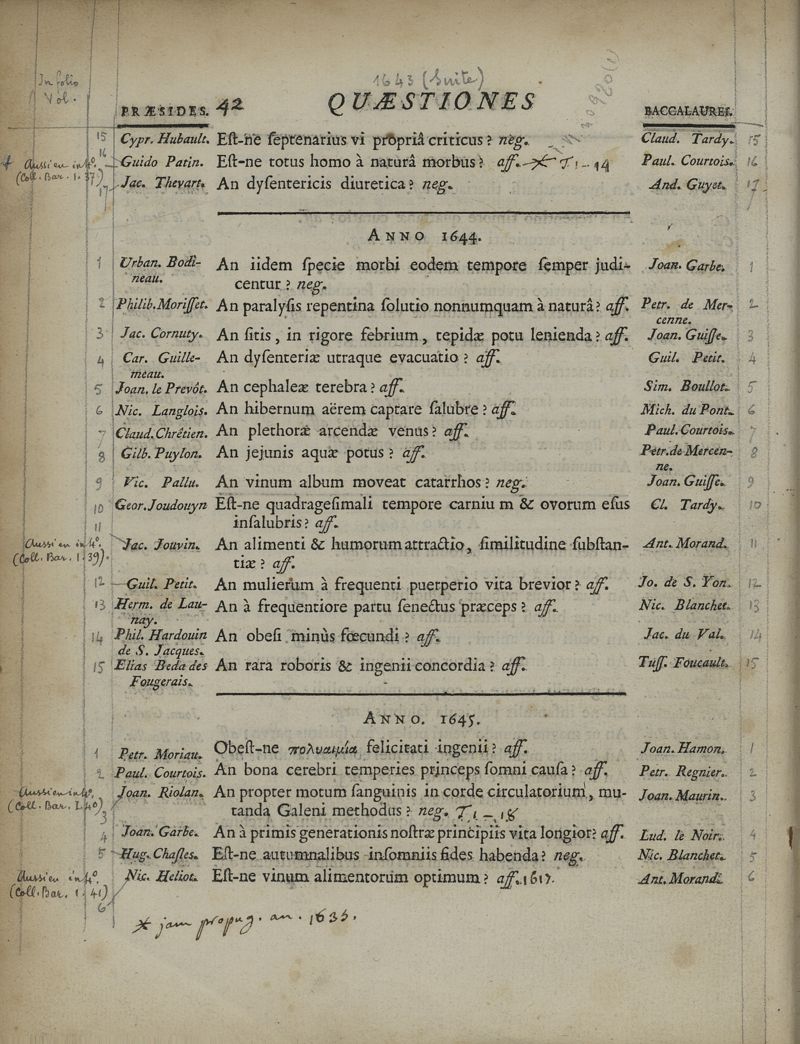 In folio
Vol.
1643 (Suite)
PRÆSIDES. 42 QUÆSTIONES BACCALAUREI.
15 Cypr. Hubault. Eſt-ne ſeptenarius vi propriâ criticus? neg. Claud. Tardy. 15
16 Guido Patin. Eſt-ne totus homo à naturâ morbus? aff. Paul. Courtois. 16
Aussi en in 4º.
(Coll. Bar. 1. 37)
17 Jac. Thevart. An dyſentericis diuretica? neg. And. Guyet. 17
ANNO 1644.
1 Urban. Bodi- An iidem ſpecie morbi eodem tempore ſemper judi- Joan. Garbe. 1
neau. centur? neg.
2 Philib. Moriſſet. An paralyſis repentina ſolutio nonnumquam à naturâ? aff. Petr. de Mer- 2
cenne.
3 Jac. Cornuty. An ſitis, in rigore febrium, tepidæ potu lenienda? aff. Joan. Guiſſe. 3
4 Car. Guille- An dyſenteriæ utraque evacuatio? aff. Guil. Petit. 4
meau.
5 Joan. le Prevôt. An cephaleæ terebra? aff. Sim. Boullot. 5
6 Nic. Langlois. An hibernum aërem captare ſalubre? aff. Mich. du Pont. 6
7 Claud. Chrêtien. An plethoræ arcendæ venus? aff. Paul. Courtois. 7
8 Gilb. Puylon. An jejunis aquæ potus? aff. Petr. de Mercen- 8
ne.
9 Vic. Pallu. An vinum album moveat catarrhos? neg. Joan. Guiſſe. 9
10 Geor. Joudouyn Eſt-ne quadrageſimali tempore carniu m & ovorum eſus Cl. Tardy. 10
inſalubris? aff.
11 Jac. Jouvin. An alimenti & humorum attractio, ſimilitudine ſubſtan- Ant. Morand. 11
Aussi en in 4º.
(Coll. Bar. 1. 39).
tiæ? aff.
12 Guil. Petit. An mulierum à frequenti puerperio vita brevior? aff. Jo. de S. Yon. 12
13 Herm. de Lau- An à frequentiore partu ſenectus præceps? aff. Nic. Blanchet. 13
nay.
14 Phil. Hardouin An obeſi minùs fœcundi? aff. Jac. du Val. 14
de S. Jacques.
15 Elias Beda des An rara roboris & ingenii concordia? aff. Tuſſ. Foucault. 15
Fougerais.
ANNO. 1645.
1 Petr. Moriau. Obeſt-ne πολυαιμία felicitati ingenii? aff. Joan. Hamon. 1
2 Paul. Courtois. An bona cerebri temperies princeps ſomni cauſa? aff. Petr. Regnier. 2
Aussi en in 4º.
(Coll. Bar. 1. 40)
3 Joan. Riolan. An propter motum ſanguinis in corde circulatorium, mu- Joan. Maurin. 3
tanda Galeni methodus? neg.
4 Joan. Garbe. An à primis generationis noſtræ principiis vita longior? aff. Lud. le Noir. 4
5 Hug. Chaſles. Eſt-ne autumnalibus inſomniis fides habenda? neg. Nic. Blanchet. 5
Aussi en in 4º.
(Coll. Bar. 1. 41)
6 Nic. Heliot. Eſt-ne vinum alimentorum optimum? aff. 1617. Ant. Morand. 6
jam propug. an. 1633.